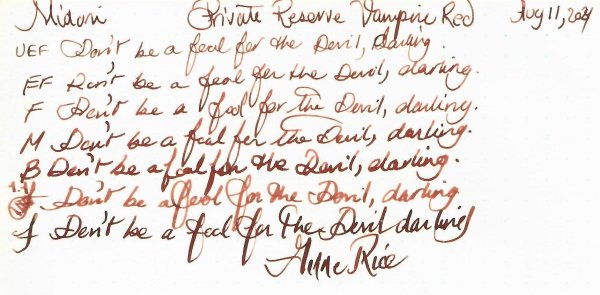 Midori Private Reserve Vampire Red Aug 11, 2021
UEF Don't be a fool for the Devil, darling.
EF Don't be a fool for the Devil, darling.
F Don't be a fool for The Devil, darling.
M Don't be a fool for The Devil, darling.
B Don't be a fool for the Devil, darling.
1.1 Don't be a fool for the Devil, darling
f Don't be a fool for The Devil darling
Anne Rice